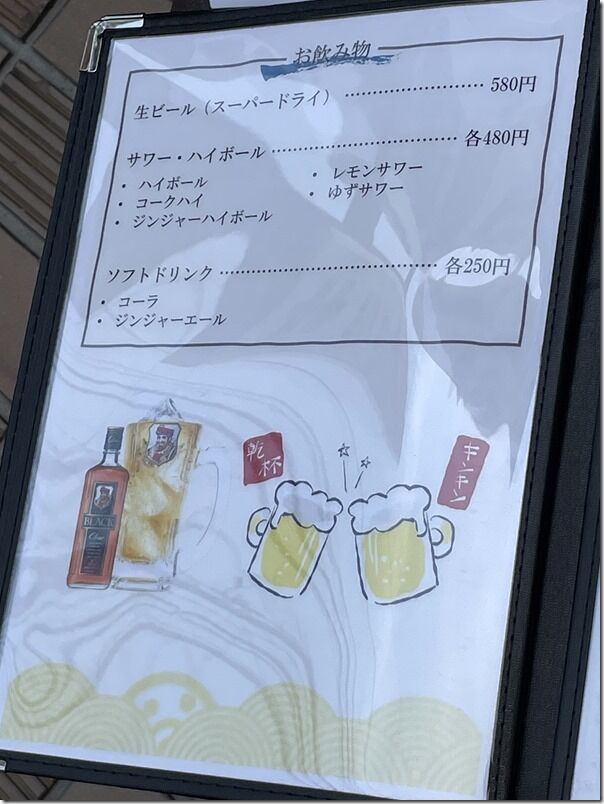 お飲み物
生ビール（スーパードライ） 580円
サワー・ハイボール 各480円
・ ハイボール
・ コークハイ
・ ジンジャーハイボール
・ レモンサワー
・ ゆずサワー
ソフトドリンク 各250円
・ コーラ
・ ジンジャーエール
乾杯
キンキン
BLACK
Clear